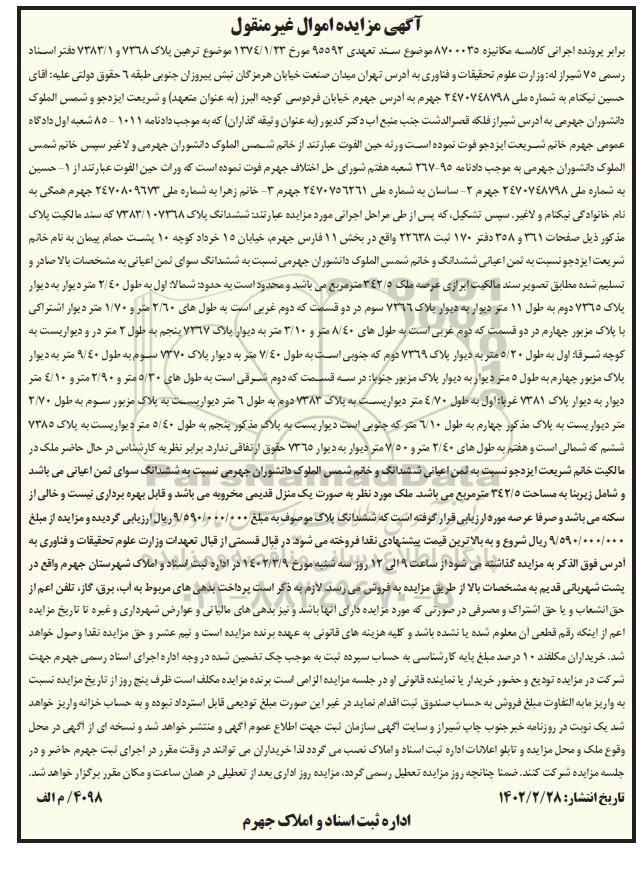 آگهی مزایده اموال غیرمنقول
برابر پرونده اجرائی کلاسه مکانیزه ۸۷۰۰۰۳۵ موضوع سند تعهدی ۹۵۵۹۲ مورخ ۱۳۷۴/۱/۲۳ موضوع ترهین پلاک ۷۳۶۸ و ۷۳۸۳/۱ دفتر اسناد
رسمی ۷۵ شیراز له: وزارت علوم تحقیقات و فناوری به آدرس تهران میدان صنعت خیابان هرمزگان نبش پیروزان جنوبی طبقه ۶ حقوق دولتی علیه: آقای
حسین نیکنام به شماره ملی ۲۴۷۰۷۴۸۷۹۸ جهرم به آدرس جهرم خیابان فردوسی کوچه البرز (به عنوان متعهد) و شریعت ایزدجو و شمس الملوک
دانشوران جهرمی به آدرس شیراز فلکه قصرالدشت جنب منبع آب دکتر کدیور (به عنوان وثیقه گذاران) که به موجب دادنامه ۱۰۱۱ - ۸۵ شعبه اول دادگاه
عمومی جهرم خانم شریعت ایزدجو فوت نموده است ورثه حین الفوت عبارتند از خانم شمس الملوک دانشوران جهرمی و لاغیر سپس خانم شمس
الملوک دانشوران جهرمی به موجب دادنامه ۹۵-۳۶۷ شعبه هفتم شورای حل اختلاف جهرم فوت نموده است که وراث حین الفوت عبارتند از ۱- حسین
به شماره ملی ۲۴۷۰۷۴۸۷۹۸ جهرم ۲- ساسان به شماره ملی ۲۴۷۰۷۵۶۲۶۱ جهرم ۳- خانم زهرا به شماره ملی ۲۴۷۰۸۰۹۶۷۳ جهرم همگی به
نام خانوادگی نیکنام و لاغیر. سپس تشکیل، که پس از طی مراحل اجرائی مورد مزایده عبارتند: ششدانگ پلاک ۷۳۸۳/۱۰۷۳۶۸ که سند مالکیت پلاک
مذکور ذیل صفحات ۳۶۱ و ۳۵۸ دفتر ۱۷۰ ثبت ۲۲۶۳۸ واقع در بخش ۱۱ فارس جهرم، خیابان ۱۵ خرداد کوچه ۱۰ پشت حمام پیمان به نام خانم
شریعت ایزدجو نسبت به ثمن اعیانی ششدانگ و خانم شمس الملوک دانشوران جهرمی نسبت به ششدانگ سوای ثمن اعیانی به مشخصات بالا صادر و
تسلیم شده مطابق تصویر سند مالکیت ابرازی عرصه ملک ۳۴۲/۵ مترمربع می باشد و محدود است به حدود: شمالا: اول به طول ۲/۴۰ متر دیوار به دیوار
پلاک ۷۳۶۵ دوم به طول ۱۱ متر دیوار به دیوار پلاک ۷۳۶۶ سوم در دو قسمت که دوم غربی است به طول های ۲/۶۰ متر و ۱/۷۰ متر دیوار اشتراکی
با پلاک مزبور چهارم در دو قسمت که دوم غربی است به طول های ۸/۴۰ متر و ۳/۱۰ متر به دیوار پلاک ۷۳۶۷ پنجم به طول ۲ متر در و دیواریست به
کوچه شرقا: اول به طول ۵/۲۰ متر به دیوار پلاک ۷۳۶۹ دوم که جنوبی است به طول ۷/۴۰ متر به دیوار پلاک ۷۳۷۰ سوم به طول ۹/۴۰ متر به دیوار
پلاک مزبور چهارم به طول ۵ متر دیوار به دیوار پلاک مزبور جنوبا: در سه قسمت که دوم شرقی است به طول های ۵/۳۰ متر و ۲/۹۰ متر و ۴/۱۰ متر
دیوار به دیوار پلاک ۷۳۸۱ غربا: اول به طول ۴/۷۰ متر دیواریست به پلاک ۷۳۸۳ دوم به طول ۶ متر دیواریست به پلاک مزبور سوم به طول ۲/۷۰
متر دیواریست به پلاک مذکور چهارم به طول ۶/۱۰ متر که جنوبی است دیواریست به پلاک مذکور پنجم به طول ۵/۴۰ متر دیواریست به پلاک ۷۳۸۵
ششم که شمالی است و هفتم به طول های ۲/۴۰ متر و ۷/۵۰ متر دیوار به دیوار ۷۳۶۵ حقوق ارتفاقی ندارد. برابر نظریه کارشناس در حال حاضر ملک در
مالکیت خانم شریعت ایزدجو نسبت به ثمن اعیانی ششدانگ و خانم شمس الملوک دانشوران جهرمی نسبت به ششدانگ سوای ثمن اعیانی می باشد
و شامل زیربنا به مساحت ۳۴۲/۵ مترمربع می باشد. ملک مورد نظر به صورت یک منزل قدیمی مخروبه می باشد و قابل بهره برداری نیست و خالی از
سکنه می باشد و صرفا عرصه مورد ارزیابی قرار گرفته است که ششدانگ پلاک موصوف به مبلغ ۹/۵۹۰/۰۰۰/۰۰۰ ریال ارزیابی گردیده و مزایده از مبلغ
۹/۵۹۰/۰۰۰/۰۰۰ ریال شروع و به بالاترین قیمت پیشنهادی نقدا فروخته می شود. در قبال قسمتی از قبال تعهدات وزارت علوم تحقیقات و فناوری به
آدرس فوق الذکر به مزایده گذاشته می شود از ساعت ۹ الی ۱۲ روز سه شنبه مورخ ۱۴۰۲/۳/۹ در اداره ثبت اسناد و املاک شهرستان جهرم واقع در
پشت شهربانی قدیم به مشخصات بالا از طریق مزایده به فروش می رسد. لازم به ذکر است پرداخت بدهی های مربوط به آب، برق، گاز، تلفن اعم از
حق انشعاب و یا حق اشتراک و مصرفی در صورتی که مورد مزایده دارای آنها باشد و نیز بدهی های مالیاتی و عوارض شهرداری و غیره تا تاریخ مزایده
اعم از اینکه رقم قطعی آن معلوم شده یا نشده باشد و کلیه هزینه های قانونی به عهده برنده مزایده است و نیم عشر و حق مزایده نقدا وصول خواهد
شد. خریداران مکلفند ۱۰ درصد مبلغ پایه کارشناسی به حساب سپرده ثبت به موجب چک تضمین شده در وجه اداره اجرای اسناد رسمی جهرم جهت
شرکت در مزایده تودیع و حضور خریدار یا نماینده قانونی او در جلسه مزایده الزامی است برنده مزایده مکلف است ظرف پنج روز از تاریخ مزایده نسبت
به واریز مابه التفاوت مبلغ فروش به حساب صندوق ثبت اقدام نماید در غیر این صورت مبلغ تودیعی قابل استرداد نبوده و به حساب خزانه واریز خواهد
شد یک نوبت در روزنامه خبرجنوب چاپ شیراز و سایت آگهی سازمان ثبت جهت اطلاع عموم آگهی و منتشر خواهد شد و نسخه ای از آگهی در محل
وقوع ملک و محل مزایده و تابلو اعلانات اداره ثبت اسناد و املاک نصب می گردد لذا خریداران می توانند در وقت مقرر در اجرای ثبت جهرم حاضر و در
جلسه مزایده شرکت کنند. ضمنا چنانچه روز مزایده تعطیل رسمی گردد، مزایده روز اداری بعد از تعطیلی در همان ساعت و مکان مقرر برگزار خواهد شد.
تاریخ انتشار: ۱۴۰۲/۲/۲۸ ۴۰۹۸/ م الف
اداره ثبت اسناد و املاک جهرم
ParsNamadData
پایگاه اطلاع رسانی مناقصه و مزایده
۰۲۱-۸۸۳۴۹۶۷۰-۵